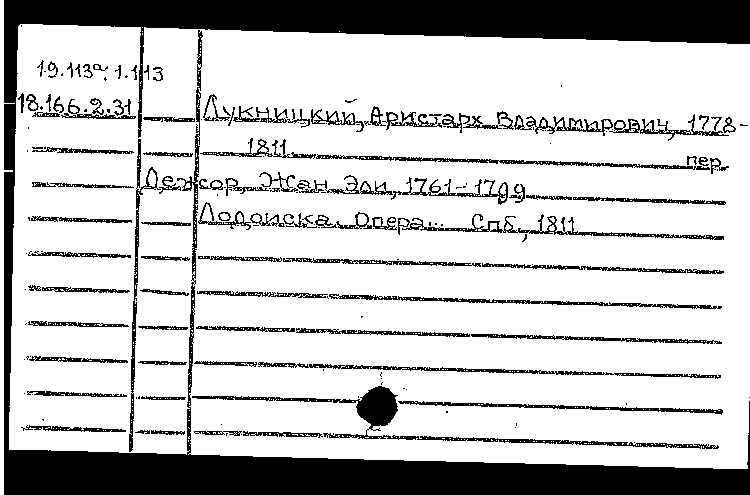 19.113а.1.113
18.166.2.31
Лукницкий, Аристарх Владимирович, 1778-
1811. пер.
Дежор, Жан Эли, 1761-1799
Лодоиска. Опера... Спб., 1811